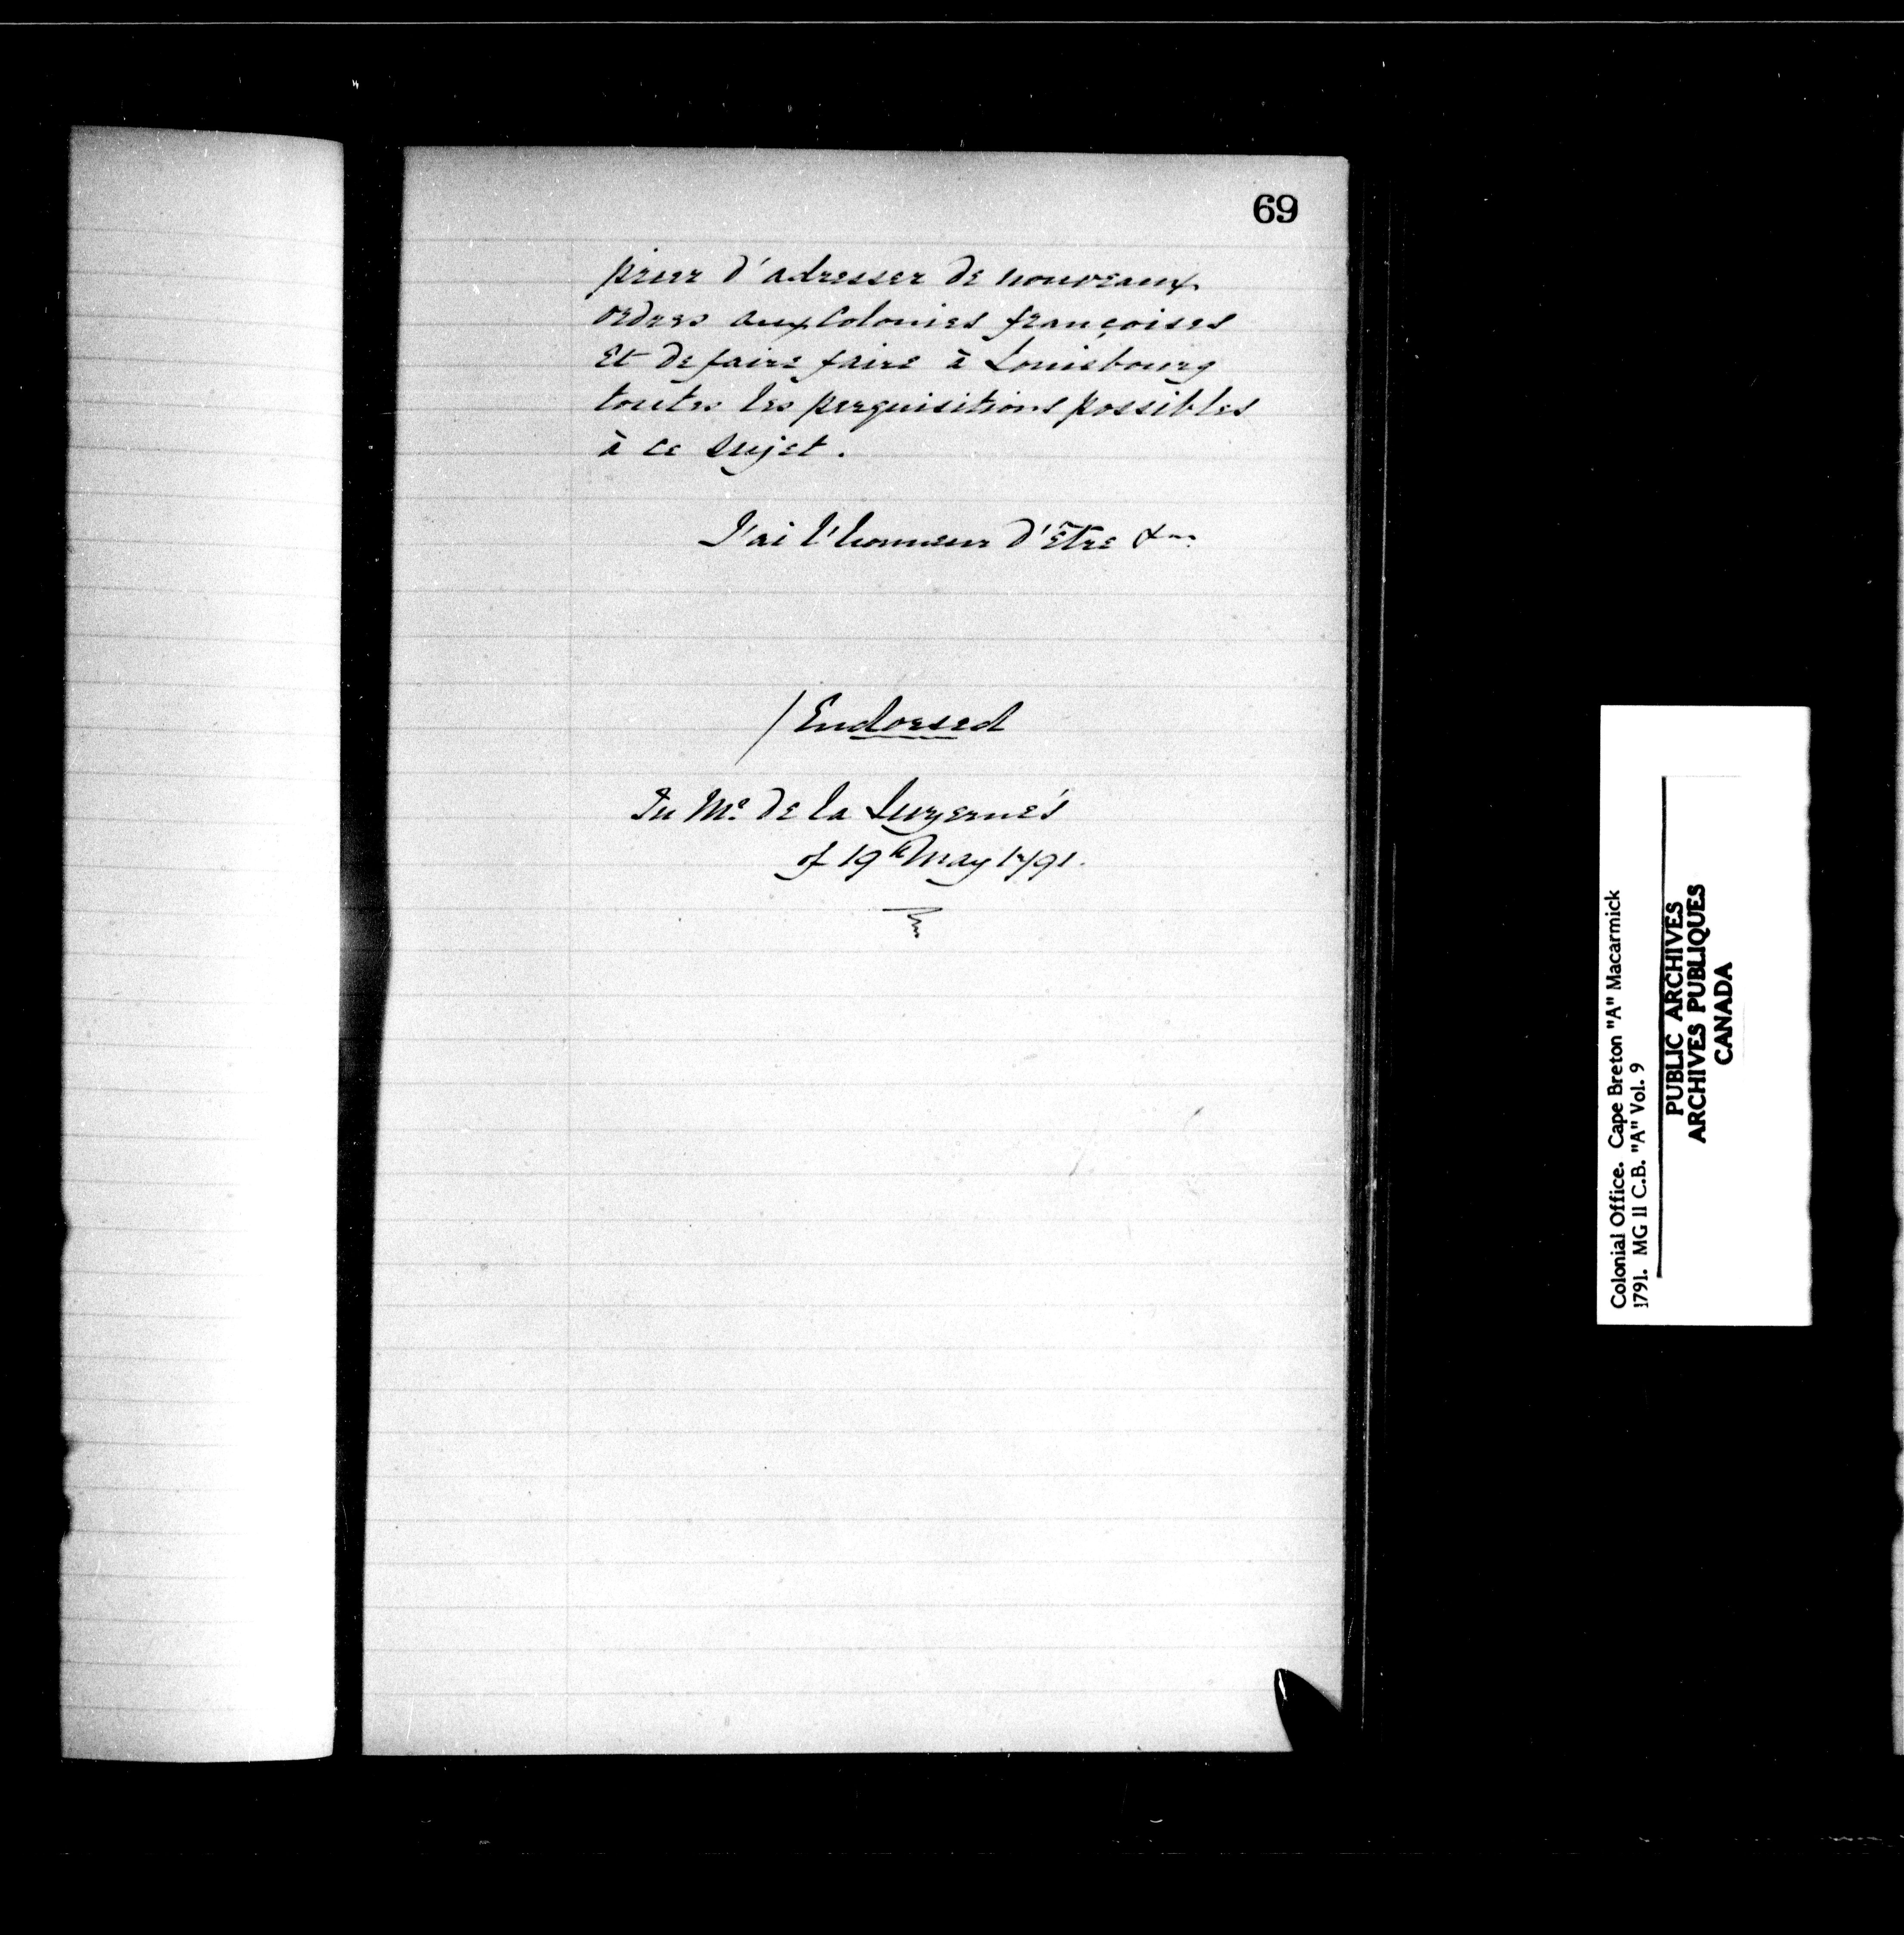 69
prier d'adresser de nouveaux
ordres aux Colonies françoises
Et de faire faire à Louisbourg
toutes les perquisitions possibles
à ce sujet.
J'ai l'honneur d'Être &
/ Endorsed
In Mr. de la Luzerne's
of 19th May 1791.
Colonial Office. Cape Breton "A" Macarmick
1791. MG 11 C.B. "A" Vol. 9
PUBLIC ARCHIVES
ARCHIVES PUBLIQUES
CANADA